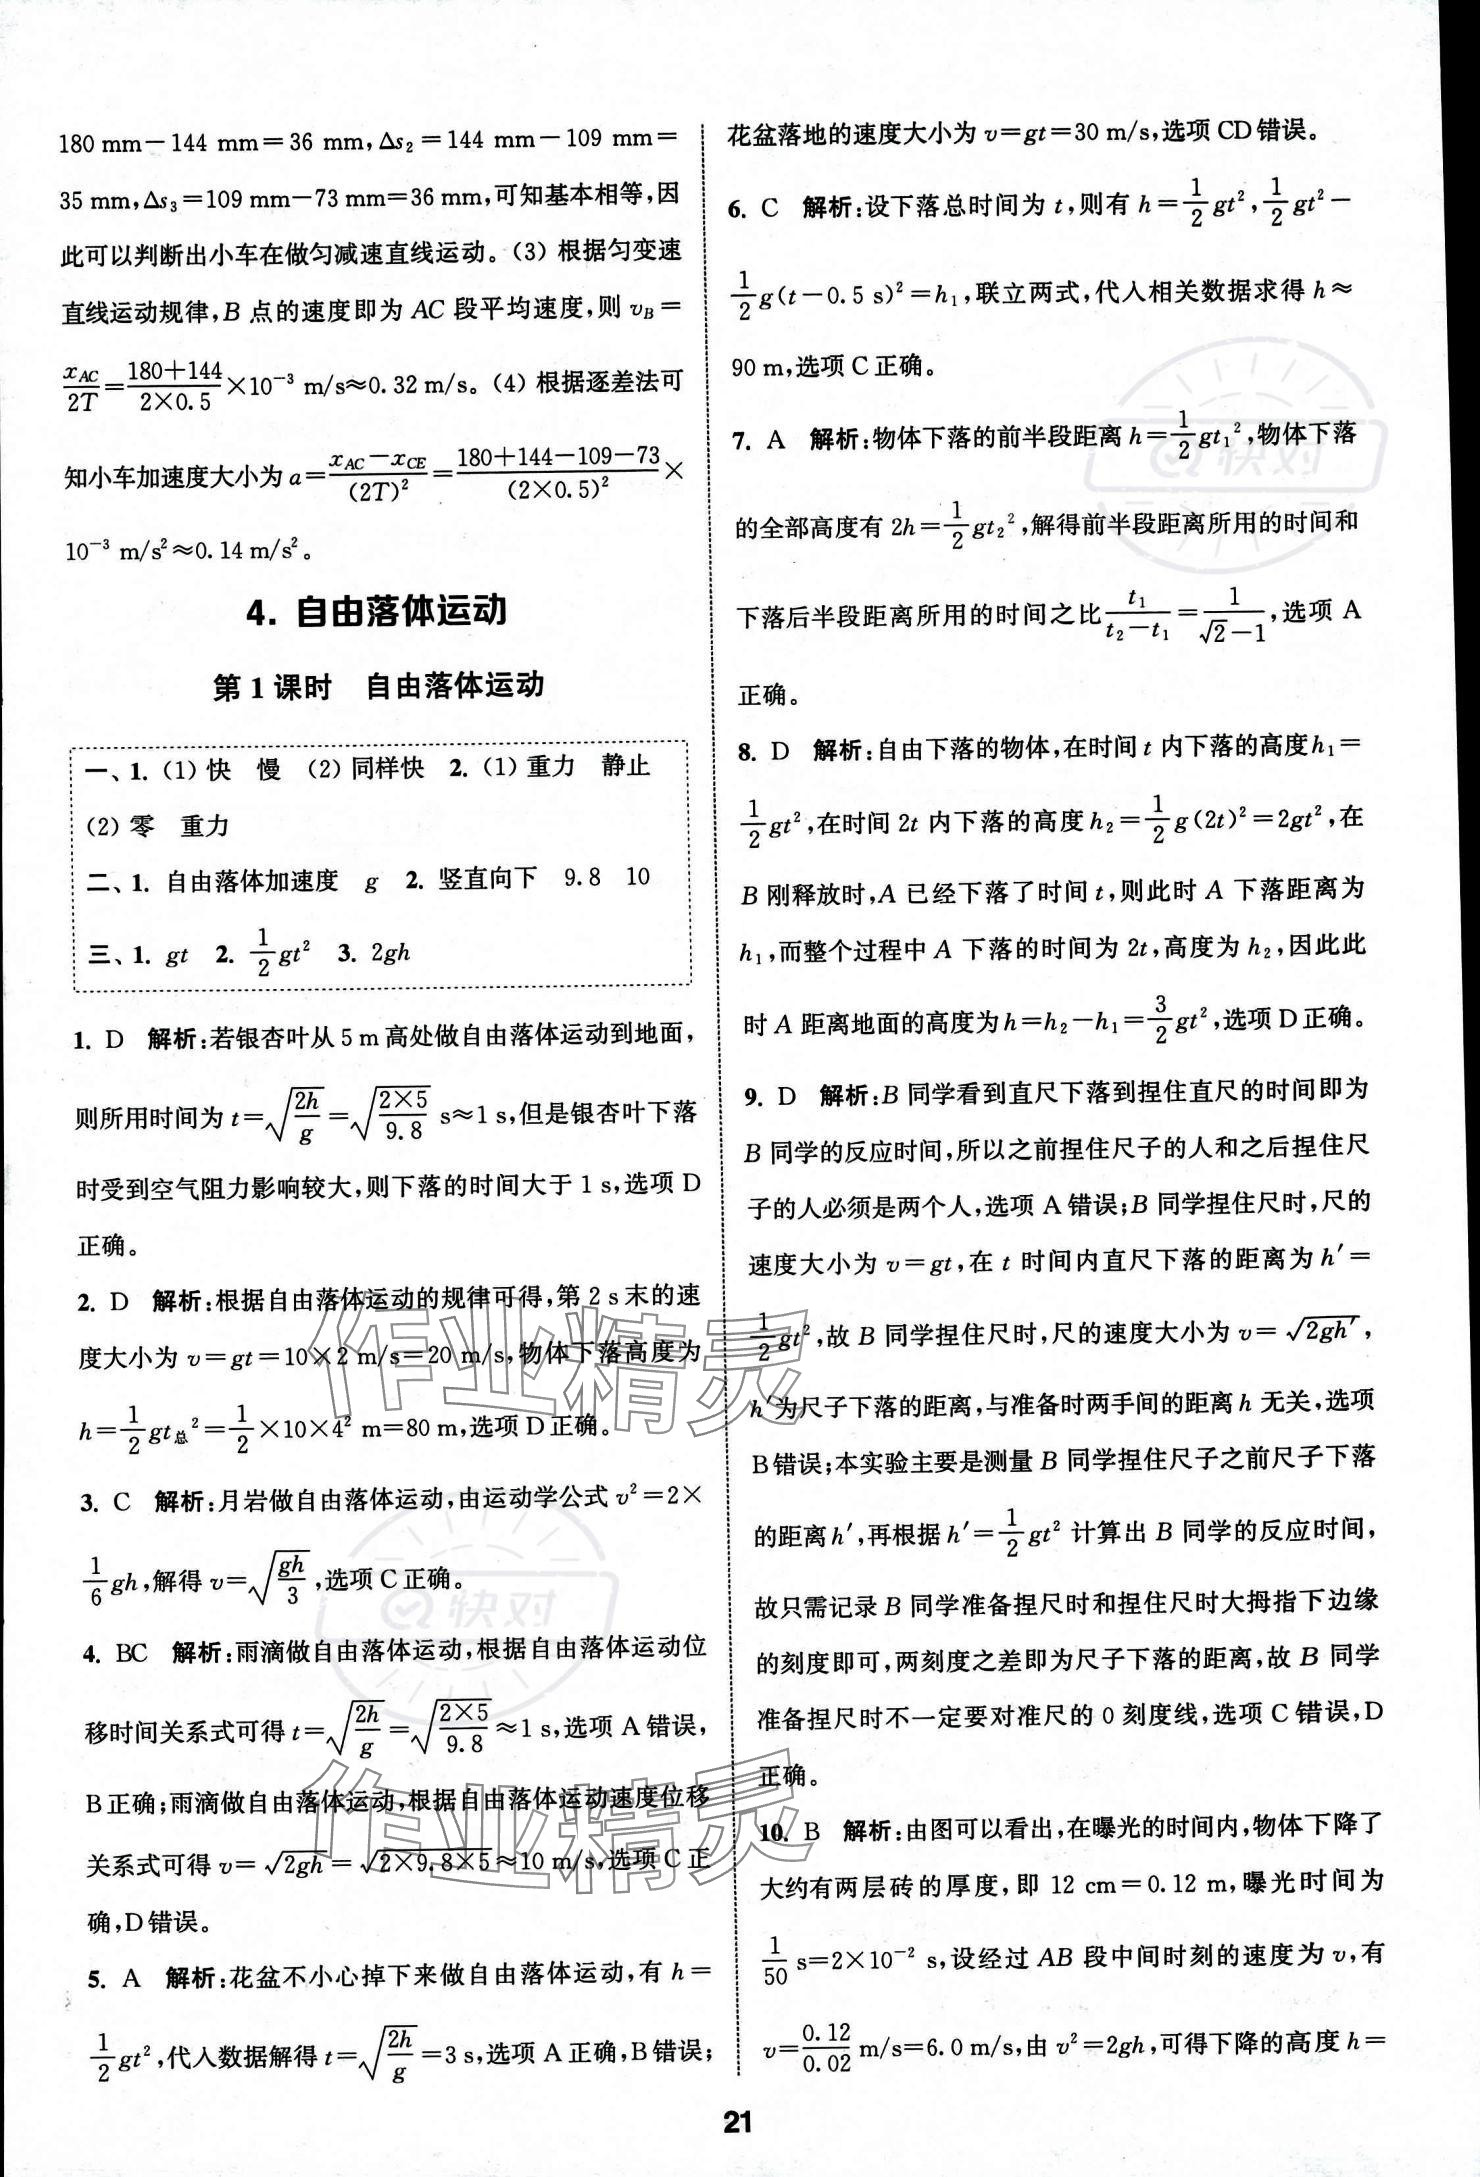 180 mm－144 mm＝36 mm,Δs₂＝144 mm－109 mm＝
35 mm,Δs₃＝109 mm－73 mm＝36 mm,可知基本相等,因
此可以判断出小车在做匀减速直线运动。(3) 根据匀变速
直线运动规律,B 点的速度即为 AC 段平均速度,则 v_B＝
x_AC/2T＝(180＋144)/(2×0.5)×10⁻³ m/s≈0.32 m/s。(4) 根据逐差法可
知小车加速度大小为 a＝(x_AC－x_CE)/(2T)²＝(180＋144－109－73)/(2×0.5)²×
10⁻³ m/s²≈0.14 m/s²。
4. 自由落体运动
第 1 课时 自由落体运动
一、1. (1) 快 慢 (2) 同样快 2. (1) 重力 静止
(2) 零 重力
二、1. 自由落体加速度 g 2. 竖直向下 9.8 10
三、1. gt 2. 1/2gt² 3. 2gh
1. D 解析:若银杏叶从 5 m 高处做自由落体运动到地面,
则所用时间为 t＝√(2h/g)＝√(2×5/9.8) s≈1 s,但是银杏叶下落
时受到空气阻力影响较大,则下落的时间大于 1 s,选项 D
正确。
2. D 解析:根据自由落体运动的规律可得,第 2 s 末的速
度大小为 v＝gt＝10×2 m/s＝20 m/s,物体下落高度为
h＝1/2gt总²＝1/2×10×4² m＝80 m,选项 D 正确。
3. C 解析:月岩做自由落体运动,由运动学公式 v²＝2×
1/6gh,解得 v＝√(gh/3),选项 C 正确。
4. BC 解析:雨滴做自由落体运动,根据自由落体运动位
移时间关系式可得 t＝√(2h/g)＝√(2×5/9.8)≈1 s,选项 A 错误,
B 正确;雨滴做自由落体运动,根据自由落体运动速度位移
关系式可得 v＝√2gh＝√2×9.8×5≈10 m/s,选项 C 正
确,D 错误。
5. A 解析:花盆不小心掉下来做自由落体运动,有 h＝
1/2gt²,代入数据解得 t＝√(2h/g)＝3 s,选项 A 正确,B 错误;
花盆落地的速度大小为 v＝gt＝30 m/s,选项 CD 错误。
6. C 解析:设下落总时间为 t,则有 h＝1/2gt²,1/2gt²－
1/2g(t－0.5 s)²＝h₁,联立两式,代入相关数据求得 h≈
90 m,选项 C 正确。
7. A 解析:物体下落的前半段距离 h＝1/2gt₁²,物体下落
的全部高度有 2h＝1/2gt₂²,解得前半段距离所用的时间和
下落后半段距离所用的时间之比 t₁/(t₂－t₁)＝1/(√2－1),选项 A
正确。
8. D 解析:自由下落的物体,在时间 t 内下落的高度 h₁＝
1/2gt²,在时间 2t 内下落的高度 h₂＝1/2g(2t)²＝2gt²,在
B 刚释放时,A 已经下落了时间 t,则此时 A 下落距离为
h₁,而整个过程中 A 下落的时间为 2t,高度为 h₂,因此此
时 A 距离地面的高度为 h＝h₂－h₁＝3/2gt²,选项 D 正确。
9. D 解析:B 同学看到直尺下落到捏住直尺的时间即为
B 同学的反应时间,所以之前捏住尺子的人和之后捏住尺
子的人必须是两个人,选项 A 错误;B 同学捏住尺时,尺的
速度大小为 v＝gt,在 t 时间内直尺下落的距离为 h′＝
1/2gt²,故 B 同学捏住尺时,尺的速度大小为 v＝√2gh′,
h′为尺子下落的距离,与准备时两手间的距离 h 无关,选项
B 错误;本实验主要是测量 B 同学捏住尺子之前尺子下落
的距离 h′,再根据 h′＝1/2gt² 计算出 B 同学的反应时间,
故只需记录 B 同学准备捏尺时和捏住尺时大拇指下边缘
的刻度即可,两刻度之差即为尺子下落的距离,故 B 同学
准备捏尺时不一定要对准尺的 0 刻度线,选项 C 错误,D
正确。
10. B 解析:由图可以看出,在曝光的时间内,物体下降了
大约有两层砖的厚度,即 12 cm＝0.12 m,曝光时间为
1/50 s＝2×10⁻² s,设经过 AB 段中间时刻的速度为 v,有
v＝0.12/0.02 m/s＝6.0 m/s,由 v²＝2gh,可得下降的高度 h＝
21
快对
快对
作业精灵
作业精灵